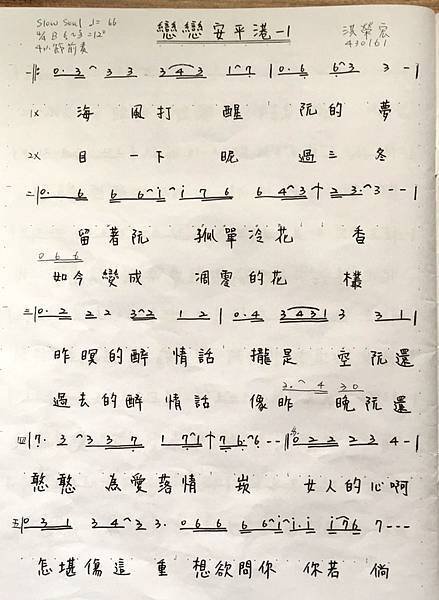 Slow Soul ♩= 66
戀戀安平港-1
洪榮宏
430161
4/4 B
4小節前奏
一 ‖: 0·3^3 3 3 4 3 1^7 | 0·6 6^3 3 - |
1x 海風打醒 阮的夢
2x 目一下眤 過三冬
二 | 0· 6 6 6^i^i 7 6 6 4^3 + 2 3·^3 - - |
留著阮 孤單冷花香
0 6 6
如今變成 凋零的花欉
三 | 0·2 2 2 3^2 1 2 | 0·4 3 4 3 1 3 3 1 |
昨暝的醉情話 攏是空 阮還
2·^4 3 0
過去的醉情話 像昨晚 阮還
四 | 7· 3^3 3 7 1 7^1 + 7 6·^6 - - ‖ 0 2 2 2 2 3 4 - |
憨憨 為愛落情崁 女人的心啊
五 | 0 3 1 3 4^3 3· 0 6 6 6 6 6^i^i·i i 7 6 7 - - -
怎堪傷這重 想欲問你 你若倘